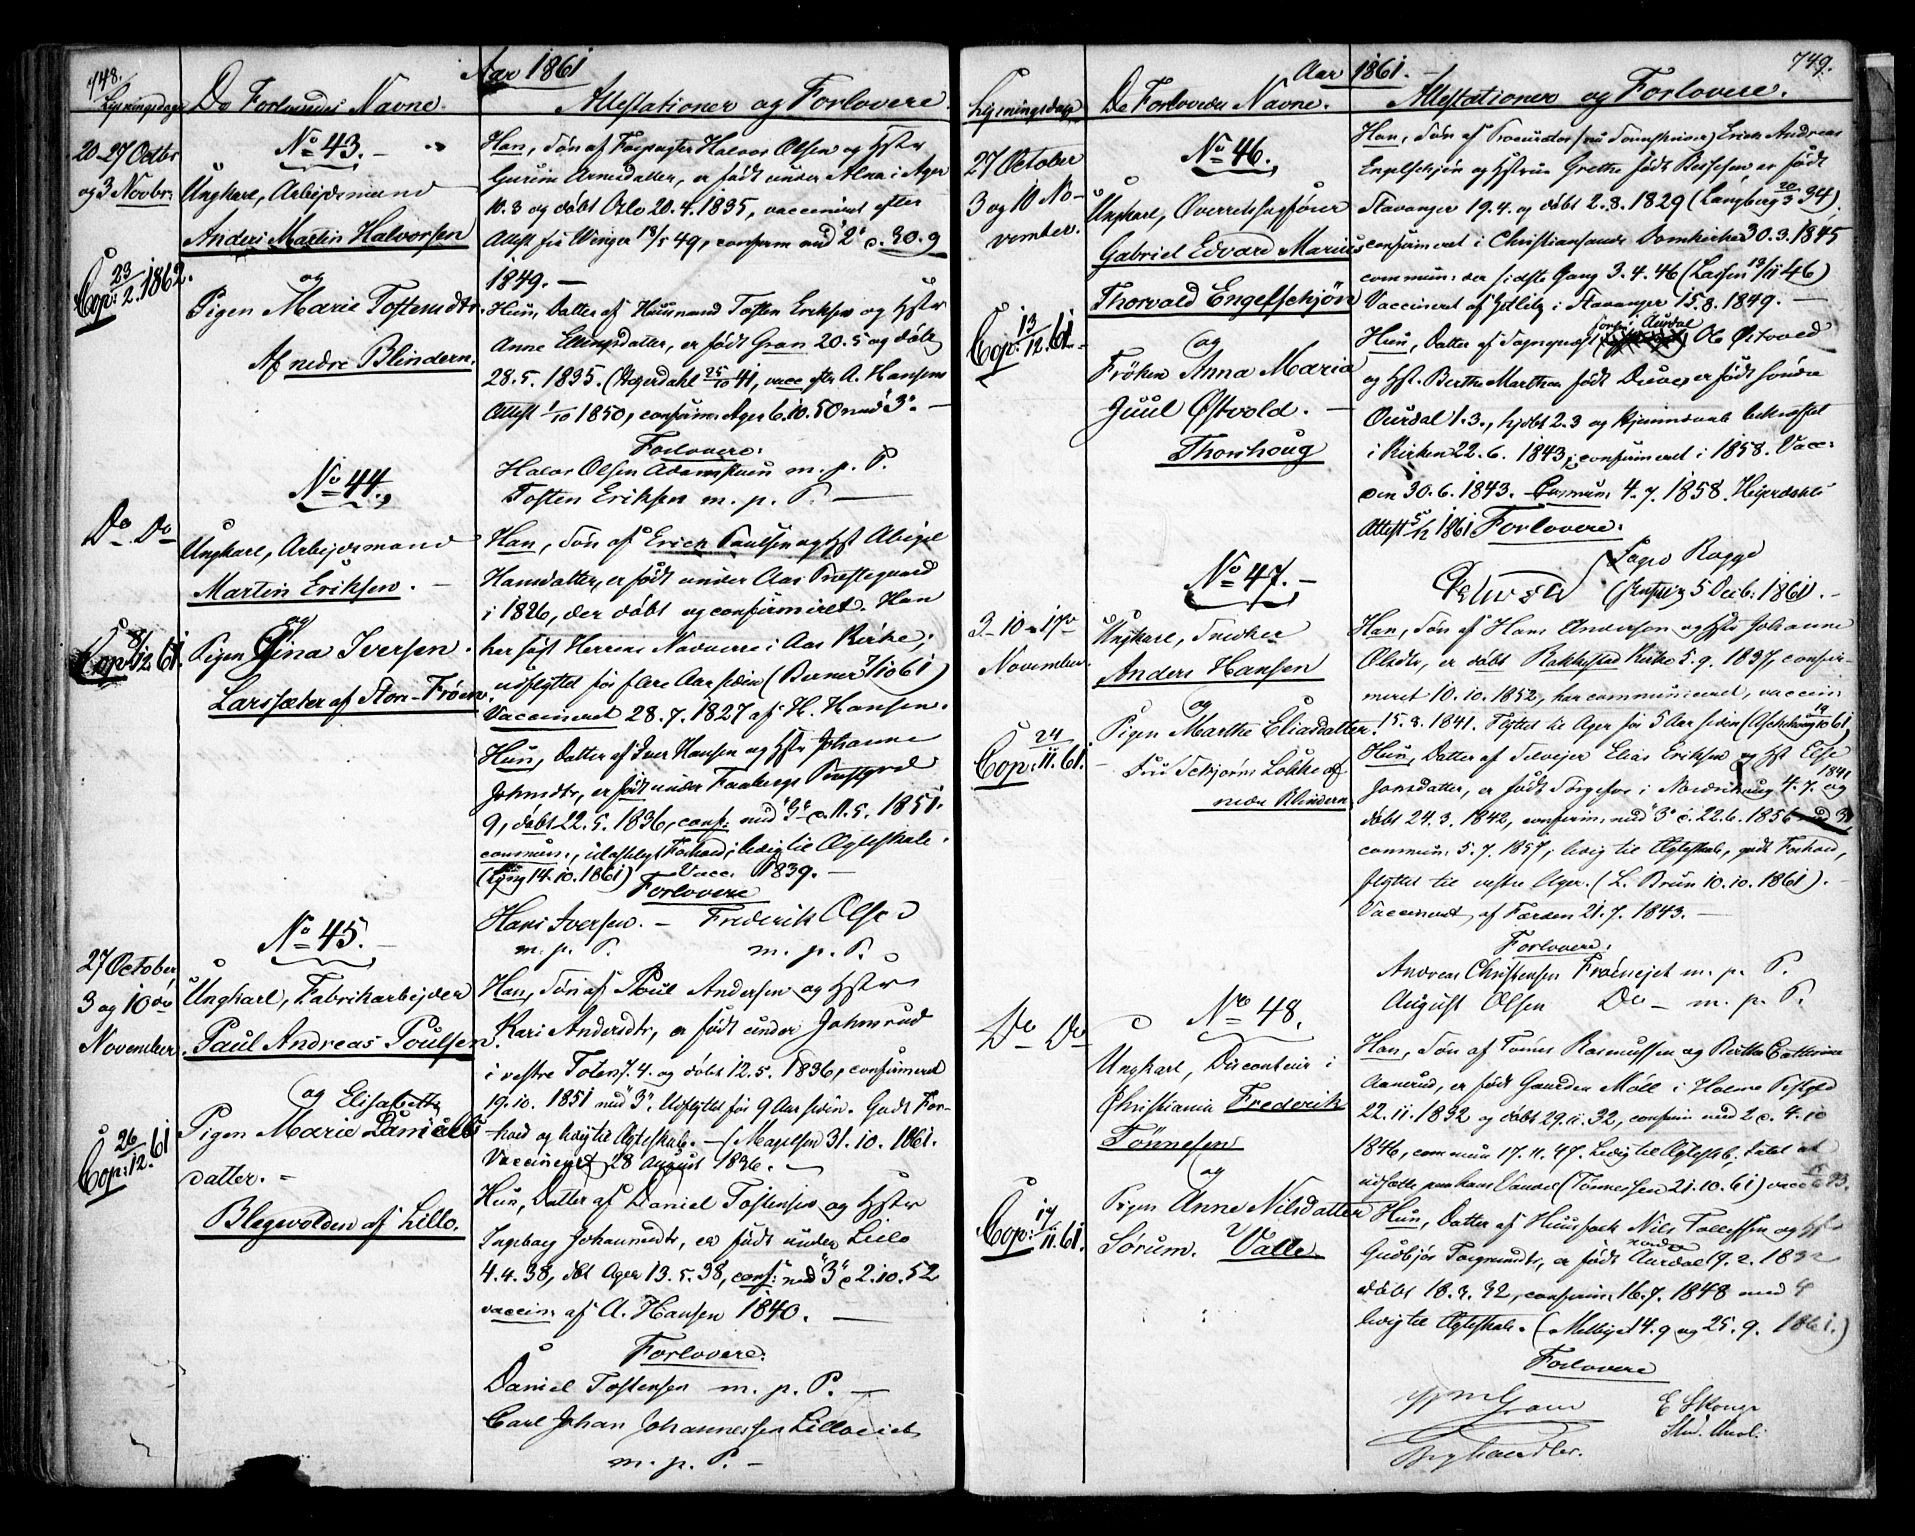 748.
Aar 1861
Lysningsdage
De Forlovedes Navne.
Attestationer og Forlovere.
20-27 Octbr
og 3 Novbr.
No 43.
Ungkarl, Arbejdsmand
Anders Martin Halvorsen
Cop: 23/2. 1862.
og
Pigen Marie Tostensdtr.
Af nedre Blindern.
Han, Søn af Halvor Olsen og Hstr
Gurine Arnesdatter, er født under Alna i Ager
10.3 og døbt Oslo 20.4.1835, vaccineret efter
Attest fra Wenger 18/5 49, confirm med 2 d. 30.9
1849. —
Hun, Datter af Huusmand Tosten Eriksen og Hstr
Anne datter, er født Gran 20.5 og døbt
28.5. 1835. (Hejerdahl 25/10 41, vacc efter A. Hansens
Attest 1/10 1850, confirm: Ager 6.10.50 med "3". —
Forlovere:
Halvor Olsen m. p. P.
Tosten Eriksen m. p. P. —
No 44.
Do Do
Ungkarl, Arbejdsmand
Martin Eriksen. —
Cop 8/12 61.
og
Pigen Gina Iversen.
Larssæter af Store-Frøen.
Han, Søn af Erick Paulsen og Hst Abigel
Hansdatter, er født under Aas Præstegaard
i 1826, der døbt og confirmeret. Han
har søgt Herrens Nadvere i Aas Kirke;
udflyttet for flere Aar siden (Berner 7/10 61)
Vaccineret 28.7.1827 af H. Hansen.
Hun, Datter af Iver Hansen og Hstr Johanne
Johnsdtr, er født under Faabergs Præstgrd
9, døbt 22.5.1836, conf: med "3" d. 11.5.1851.
commun:, Forhold; ledig til Ægteskab.
(Lyng 14.10.1861) Vacc. 1839. —
Forlovere
Hans Iversen. — Frederik Olsen
m. p. P. m. p. P.
No 45. —
27 October,
3 og 10de
November.
Ungkarl, Fabrikarbejder
Paul Andreas Poulsen.
Cop: 26/12. 61
og Elisabeth
Pigen Marie Daniels
datter. =
Blegevolden af Lillo.
Han, Søn af Poul Andersen og Hstr
Kari Andersdtr, er født under Johnsrud
i vestre Toten 7.4. og døbt 12.5.1836, confirmeret
19.10. 1851 med "3". Udflyttet for 9 Aar siden. Godt For-
hold og ledig til Ægteskab. — (Magelsen 31.10.1861.
Vaccineret 28 August 1836. —
Hun, Datter af Daniel Tostensen og Hstr
Ingeborg Johannesdtr, er født under Lillo
4.4.38, dbt Ager 13.5.38, conf: med "3" d 2.10.52
vaccin: af A. Hansen 1840. —
Forlovere:
Daniel Tostensen m. p. P. —
Carl Johan Johannessen Lilloeiet
m. p. P. —
749.
Aar 1861. —
Lysningsdage
De Forlovedes Navne.
Attestationer og Forlovere.
27 October
3 og 10 No-
vember.
No 46.
Ungkarl, Overretssagfører
Gabriel Edvard Marius
Thorvald Engelschjøn
Cop: 13/12. 61.
og
Frøken Anna Maria
Juul Østvold. —
Thorshoug
Han, Søn af Procurator (nu Erick Andreas
Engelschjøn og Hstrue Grethe født er født
Stavanger 19.4. og døbt 2.8.1829 (Langberg 20/3 34).
confirmeret i Christiansands Domkirke 30.3.1845
commun: der sidste Gang 3.4.46 (Lassen 13/11 46)
Vaccineret af i Stavanger 15.8.1849. —
Hun, Datter af Sognepræst Søndre Aurdal Østvold
og Hst. Berthe Marthea født er født Søndre
Ourdal 1.3., hjdbt 2.3 og Hjemmedaab bekræftet
i Kirken 22.6.1843; confirmeret i 1858. Vacc:
den 30.6.1843. — Commun: 4.7.1858. Hejerdahls
Attest 5/12 1861 Forlovere:
5 Decb. 1861. —
No 47. —
3-10-17de
November.
Ungkarl, Snedker
Anders Hansen
Cop: 24/11. 61. —
og
Pigen Marthe Eliasdatter.
Løkke af
nedre Blindern.
Han, Søn af Hans Andersen og Hstr Johanne
Olsdtr, er døbt Bakkestad Kirke 5.9.1837, confir-
meret 10.10.1852, har communiceret, vaccin.
15.8.1841. Flyttet til Ager for 5 Aar siden (Aschehoug 19/10 61)
Hun, Datter af Selvejer Elias Eriksen og Hst Else
Jonsdatter, er født i Nordrehoug 4.7. 1841 og
døbt 24.3.1842, confirm: med "3" d. 22.6.1856
commun: 5.7.1857; ledig til Ægteskab, godt Forhold,
flyttet til vestre Ager. (L. Brun 10.10.1861). —
Vaccineret af Færden 21.7.1843. —
Forlovere:
Andreas Christensen Frøeneiet m. p. P.
August Olsen Do — m. p. P.
No 48.
Do Do
Ungkarl, Disconteur i
Christiania Frederik
Tønnesen
Cop: 17/11. 61.
og
Pigen Anne Nilsdatter
Sørum. Valle
Han, Søn af Tønnes Rasmussen og Berthe Cathrine
Aanerud, er født Gaarden Moll i Holme Prstgjld
22.11.1832 og døbt 29.11.32, confirm med 2 d. 4.10
1846, commun 17.11.47. Ledig til Ægteskb, Intet at
udsætte paa hans Vandel (Tønnessen 21.10.61) vacc 33.
Hun, Datter af Huusfolk Nils Tollefsen og Hst
Gudbjør Torgrimsdtr, er født nordre Aurdal 19.2.1832
døbt 18.3.32, confirm: 16.7.1848 med 4
ledig til Ægteskab. — (Melbye 14.9 og 25.9. 1861.)
Forlovere
Gram
E Skouge
Stud. Med.
Byghandler.